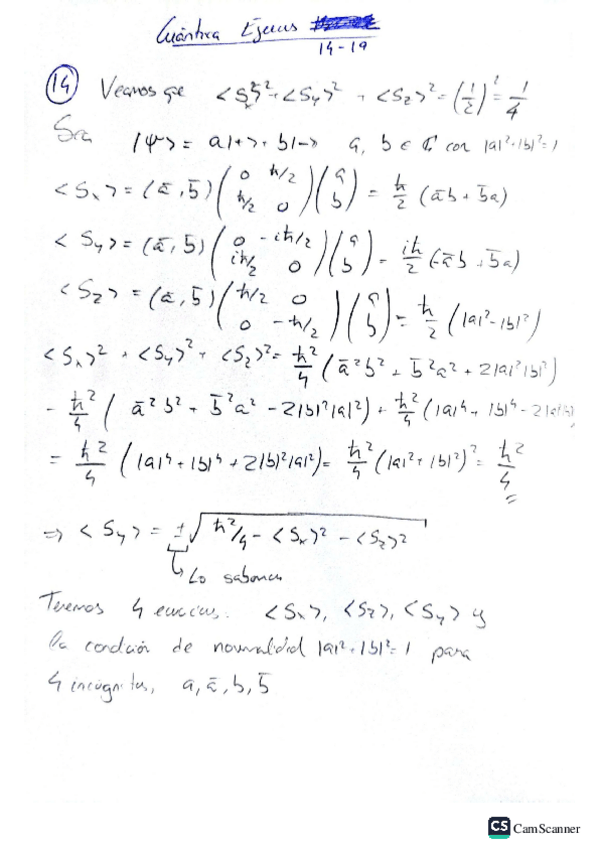 Cuántica Ejercs
14-19
(14) Veamos que <Sx>² + <Sy>² + <Sz>² = (1/2)² = 1/4
Sea |Ψ> = a|+> + b|-> a, b ∈ ℂ con |a|²+|b|²=1
<Sx> = (ā, b̄) (0 ħ/2; ħ/2 0) (a; b) = ħ/2 (āb + b̄a)
<Sy> = (ā, b̄) (0 -iħ/2; iħ/2 0) (a; b) = iħ/2 (-āb + b̄a)
<Sz> = (ā, b̄) (ħ/2 0; 0 -ħ/2) (a; b) = ħ/2 (|a|²-|b|²)
<Sx>² + <Sy>² + <Sz>² = ħ²/4 (ā²b² + b̄²a² + 2|a|²|b|²)
- ħ²/4 (ā²b² + b̄²a² - 2|b|²|a|²) + ħ²/4 (|a|⁴ + |b|⁴ - 2|a|²
= ħ²/4 (|a|⁴ + |b|⁴ + 2|b|²|a|²) = ħ²/4 (|a|² + |b|²)² = ħ²/4
⇒ <Sy> = ±√(ħ²/4 - <Sx>² - <Sz>²)
↳ Lo sabemos
Tenemos 4 <Sx>, <Sz>, <Sy> y
la condición de normalidad |a|²+|b|²=1 para
4 incógnitas, a, ā, b, b̄
CS CamScanner